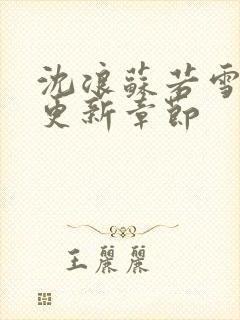 沈浪蘇若雪
更新章節
王麗麗